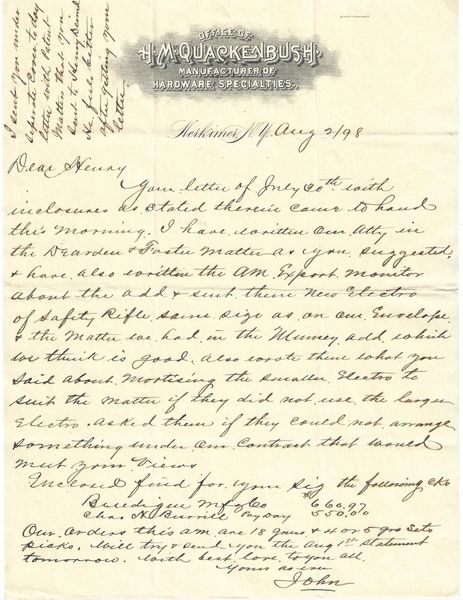 OFFICE OF
H. M. QUACKENBUSH,
MANUFACTURER OF
HARDWARE SPECIALTIES,
Herkimer, N.Y. Aug 2/98
I sent you under
seperate Cover to day
letter with Patent
Matter that you
sent to Henry Deind
He feels better
after getting your
letter.
Dear Henry
Your letter of July 30th with
inclosures as stated therein came to hand
this Morning. I have written our Atty in
the Dearden & Foster Matter as you suggested,
& have also written the Am. Export Monitor
about the add & sent them New Electro
of Safety Rifle same size as on our Envelope
& the Matter we had in the Munsey add which
we think is good. Also wrote them what you
said about Mortising the smaller Electro to
suit the Matter if they did not use the larger
Electro. Asked them if they could not arrange
something under our Contract that would
meet your Views
Enclosed find for your sig the following Cks
Mfg Co 660.97
Chas H Burrill Pay Day 550.00
Our orders this am are 18 guns & 4 or 5 gro Sets
picks. Will try & send you the Aug 1st Statement
tomorrow. With best love to you all.
Yours as ever
John